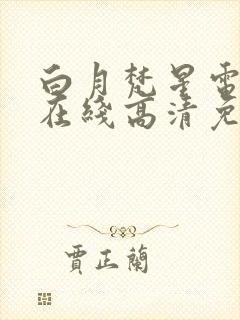 白月梵星電
在綫高清免
賈正蘭